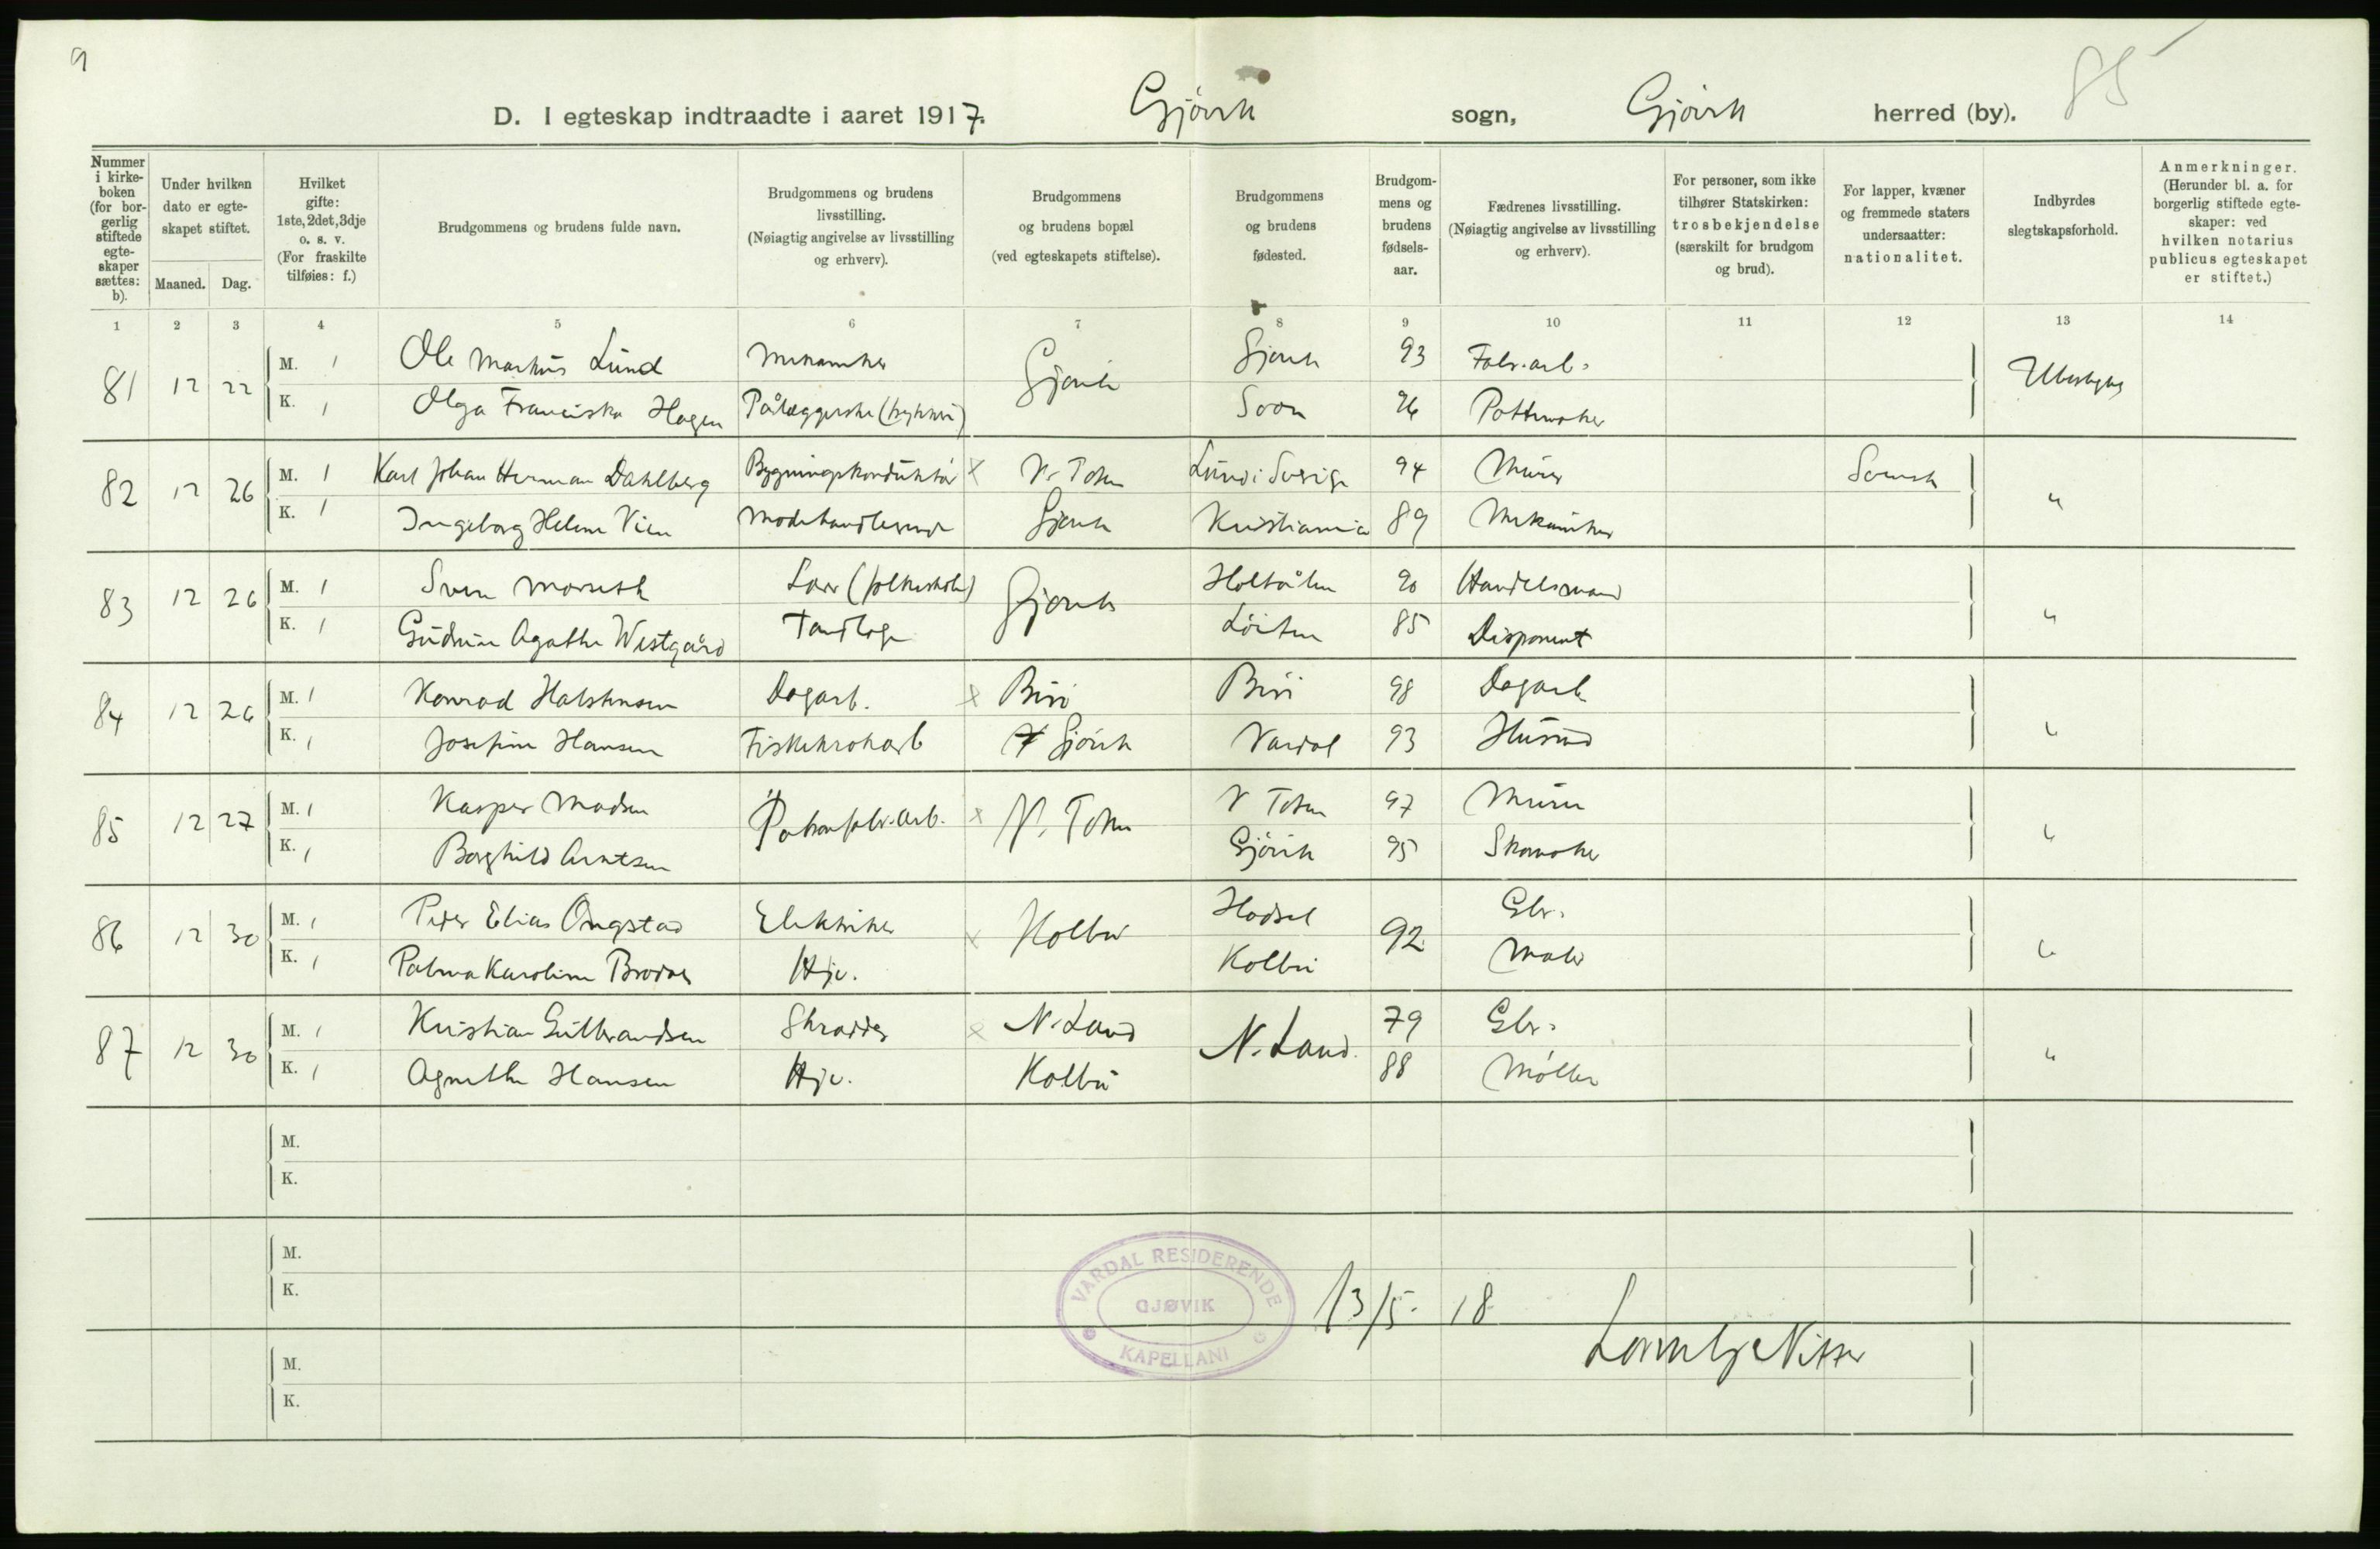 9
85
D. I egteskap indtraadte i aaret 1917. Gjövik sogn, Gjövik herred (by).
Nummer i kirkeboken (for borgerlig stiftede egteskaper sættes: b).
Under hvilken dato er egteskapet stiftet.
Maaned. Dag.
Hvilket gifte: 1ste, 2det, 3dje o. s. v. (For fraskilte tilføies: f.)
Brudgommens og brudens fulde navn.
Brudgommens og brudens livsstilling. (Nøiagtig angivelse av livsstilling og erhverv).
Brudgommens og brudens bopæl (ved egteskapets stiftelse).
Brudgommens og brudens fødested.
Brudgommens og brudens fødselsaar.
Fædrenes livsstilling. (Nøiagtig angivelse av livsstilling og erhverv).
For personer, som ikke tilhører Statskirken: trosbekjendelse (særskilt for brudgom og brud).
For lapper, kvæner og fremmede staters undersaatter: nationalitet.
Indbyrdes slegtskapsforhold.
Anmerkninger. (Herunder bl. a. for borgerlig stiftede egteskaper: ved hvilken notarius publicus egteskapet er stiftet.)
1 2 3 4 5 6 7 8 9 10 11 12 13 14
81 12 22 M. 1 Ole Markus Lund Mekaniker Gjövik Gjövik 93 Fabr. arb. Ubeslegtet
K. 1 Olga Franciska Hagen Pålæggerske (trykkeri) Soon 96 Pottemaker
82 12 26 M. 1 Karl Johan Herman Dahlberg Bygningskonduktör x V. Toten Lund i Sverige 94 Murer Svensk "
K. 1 Ingeborg Helene Vien Modehandlerinde Gjövik Kristiania 89 Mekaniker
83 12 26 M. 1 Sven Morseth Lærer (folkeskole) Gjövik Holtålen 90 Handelsmand "
K. 1 Gudrun Agathe Westgård Tandlæge Löiten 85 Disponent
84 12 26 M. 1 Konrad Halstensen Dagarb. x Biri Biri 98 Dagarb. "
K. 1 Josefine Hansen Fiskekrokarb Gjövik Vardal 93 Husmd
85 12 27 M. 1 Kasper Madsen Patronfabr. arb. x V. Toten V Toten 97 Murer "
K. 1 Borghild Arntsen Gjövik 95 Skomaker
86 12 30 M. 1 Peder Elias Ongstad Elektriker x Kolbu Hadsel 92 Gbr. "
K. 1 Palma Karoline Brodal Hjv. Kolbu Maler
87 12 30 M. 1 Kristian Gulbrandsen Skrædder x N. Land N. Land. 79 Gbr. "
K. 1 Agnethe Hansen Hjv. Kolbu 88 Møller
M.
K.
M.
K.
VARDAL RESIDERENDE
GJØVIK
KAPELLANI
13/5. 18
M.
K.